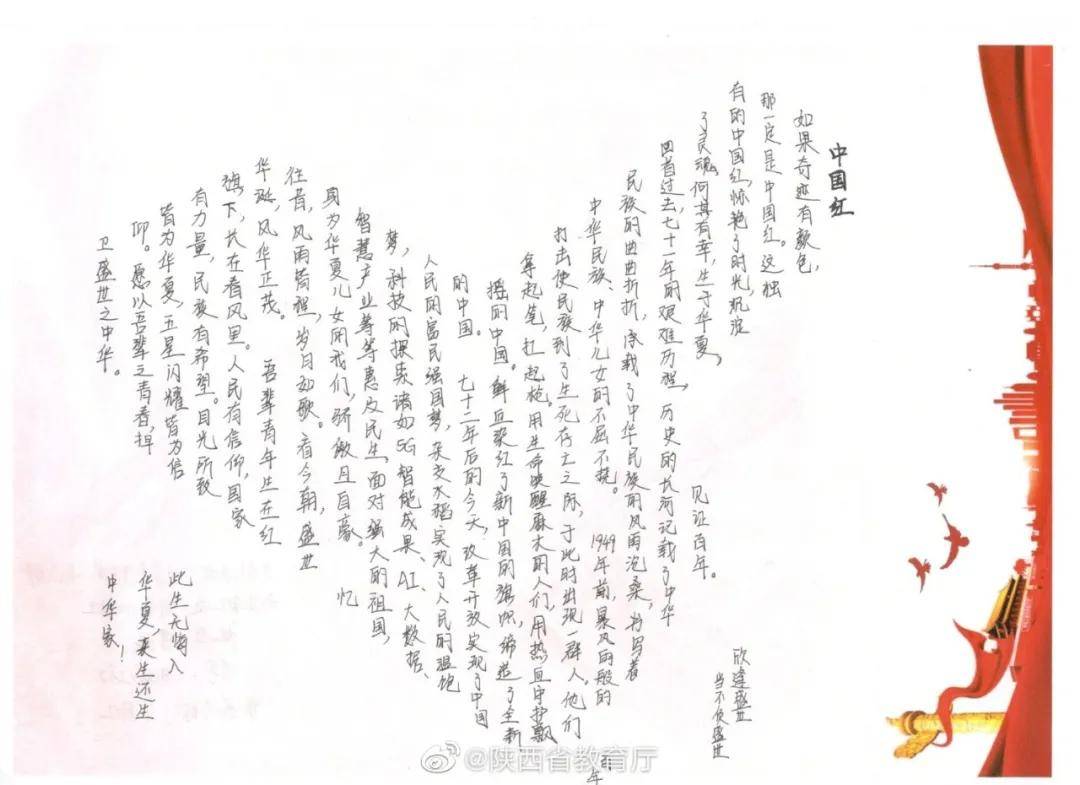 中国红
如果奇迹有颜色，
那一定是中国红。这独
有的中国红，惊艳了时光，
了灵魂。何其有幸，生于华夏，
见证百年。
欣逢盛世
当不负盛世
回首过去，七十一年的艰难历程，历史的长河记载了中华
民族的曲曲折折，承载了中华民族的风雨沧桑，书写着
中华民族、中华儿女的不屈不挠。 1949年前，暴风的般的
百年
打击使民族到了生死存亡之际，于此时出现一群人。他们
拿起笔，扛起枪，用生命唤醒麻木的人们，用热血守护飘
摇的中国。鲜血染红了新中国的旗帜，缔造了全新
的中国。 七十二年后的今天，改革开放实现了中国
人民的富民强国梦，杂交水稻实现了人民的温饱
梦，科技的探索诸如5G智能成果、AI、大数据、
智慧产业等等惠及民生，面对强大的祖国，
身为华夏儿女的我们，骄傲且自豪。 忆
往昔，风雨程，岁月如歌。看今朝，盛世
华诞，风华正茂。 吾辈青年生在红
旗下，长在春风里。人民有信仰，国家
有力量，民族有希望。目光所致
皆为华夏，五星闪耀皆为信
仰。愿以吾辈之青春，捍
卫盛世之中华。
此生无悔入
华夏，来生还生
中华家！
@陕西省教育厅